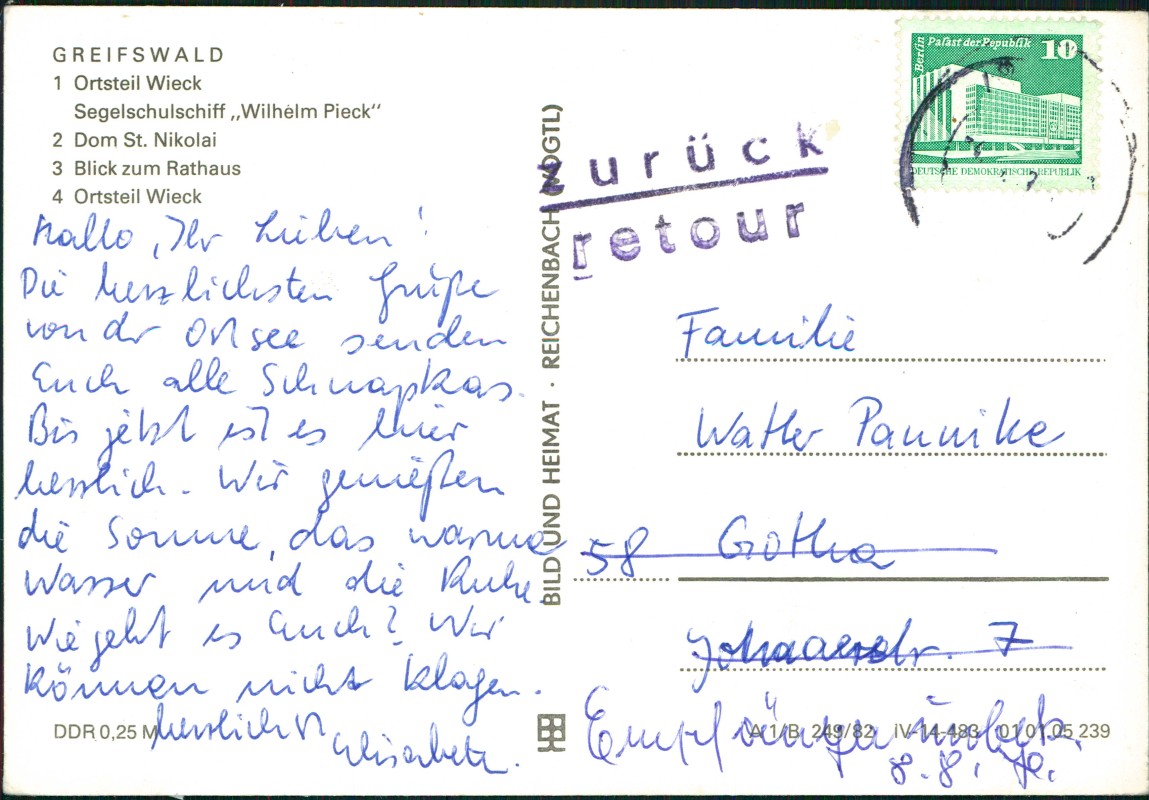 GREIFSWALD
1 Ortsteil Wieck
Segelschulschiff „Wilhelm Pieck“
2 Dom St. Nikolai
3 Blick zum Rathaus
4 Ortsteil Wieck
Hallo, Ihr Lieben!
Die herzlichsten Grüße
von der Ostsee senden
Euch alle Schnapkas.
Bis jetzt ist es hier
herrlich. Wir genießen
die Sonne, das warme
Wasser und die Ruhe.
Wie geht es Euch? Wir
können nicht klagen.
herzlichst
Elisabeth.
DDR 0,25 M
BILD UND HEIMAT · REICHENBACH (VOGTL)
zurück
retour
Berlin Palast der Republik 10
DEUTSCHE DEMOKRATISCHE REPUBLIK
Familie
Walter Pannike
58 Gotha
7
Empfänger unbek.
8.8.
A 1/B 249/82 IV-14-483 01 01 05 239